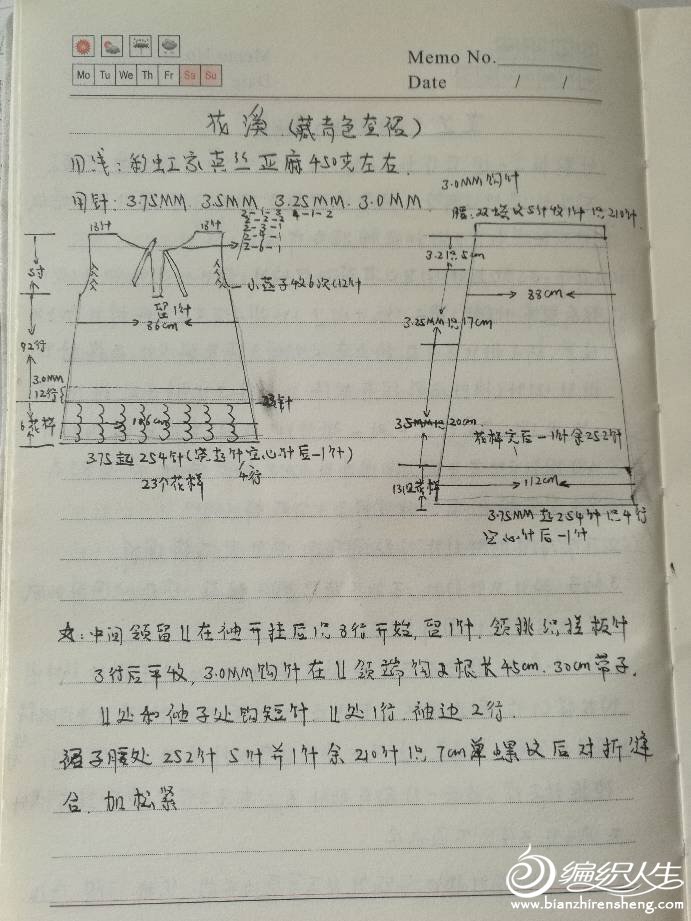 Memo No.
Mo Tu We Th Fr Sa Su
Date / /
花溪 (藏青色套裙)
用线: 彩虹家真丝亚麻450克左右.
用针: 3.75MM 3.5MM 3.25MM 3.0MM
3.0MM钩针
腰:双螺纹5针收1针织210针
18针
18针
2-1-3 4-1-2
2-2-2
2-3-1
2-4-1
2-6-1
5寸
小燕子收6次(12针
留1针
86cm
92行
3.0MM
12行
6花样
106cm
3.75起254针(穿起针空心针后-1针)
4行
23个花样
3.2织5cm
88cm
3.25MM织17cm
3.5MM织20cm
花样完后-1针余252针
13组花样
112cm
3.75MM起254针织4行
空心针后-1针
衣:中间领留ll在袖开挂后织8行开始,留1针.领挑织搓板针
3行后平收, 3.0MM钩针在ll领端钩2根长45cm.30cm带子.
ll处和袖子处钩短针.ll处1行.袖边2行.
裙子腰处252针5针并1针余210针织7cm单螺纹后对折缝
合.加松紧
编织人生
www.bianzhirensheng.com